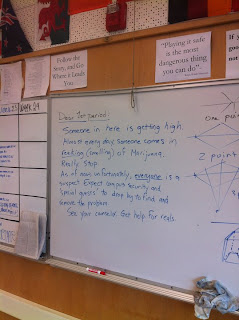 Follow the
Story, and Go
Where it Leads
You.
"Playing it safe
is the most
dangerous thing
you can do".
WEEK 24
Dear 1st period,
Someone in here is getting high.
Almost every day someone comes in
reeking (smelling) of Marijuana.
Really. Stop.
As of now, unfortunately, everyone is a
suspect. Expect campus security and
special guests to drop by to find and
remove the problem.
See your counselor. Get help. For reals.
One point
2 point